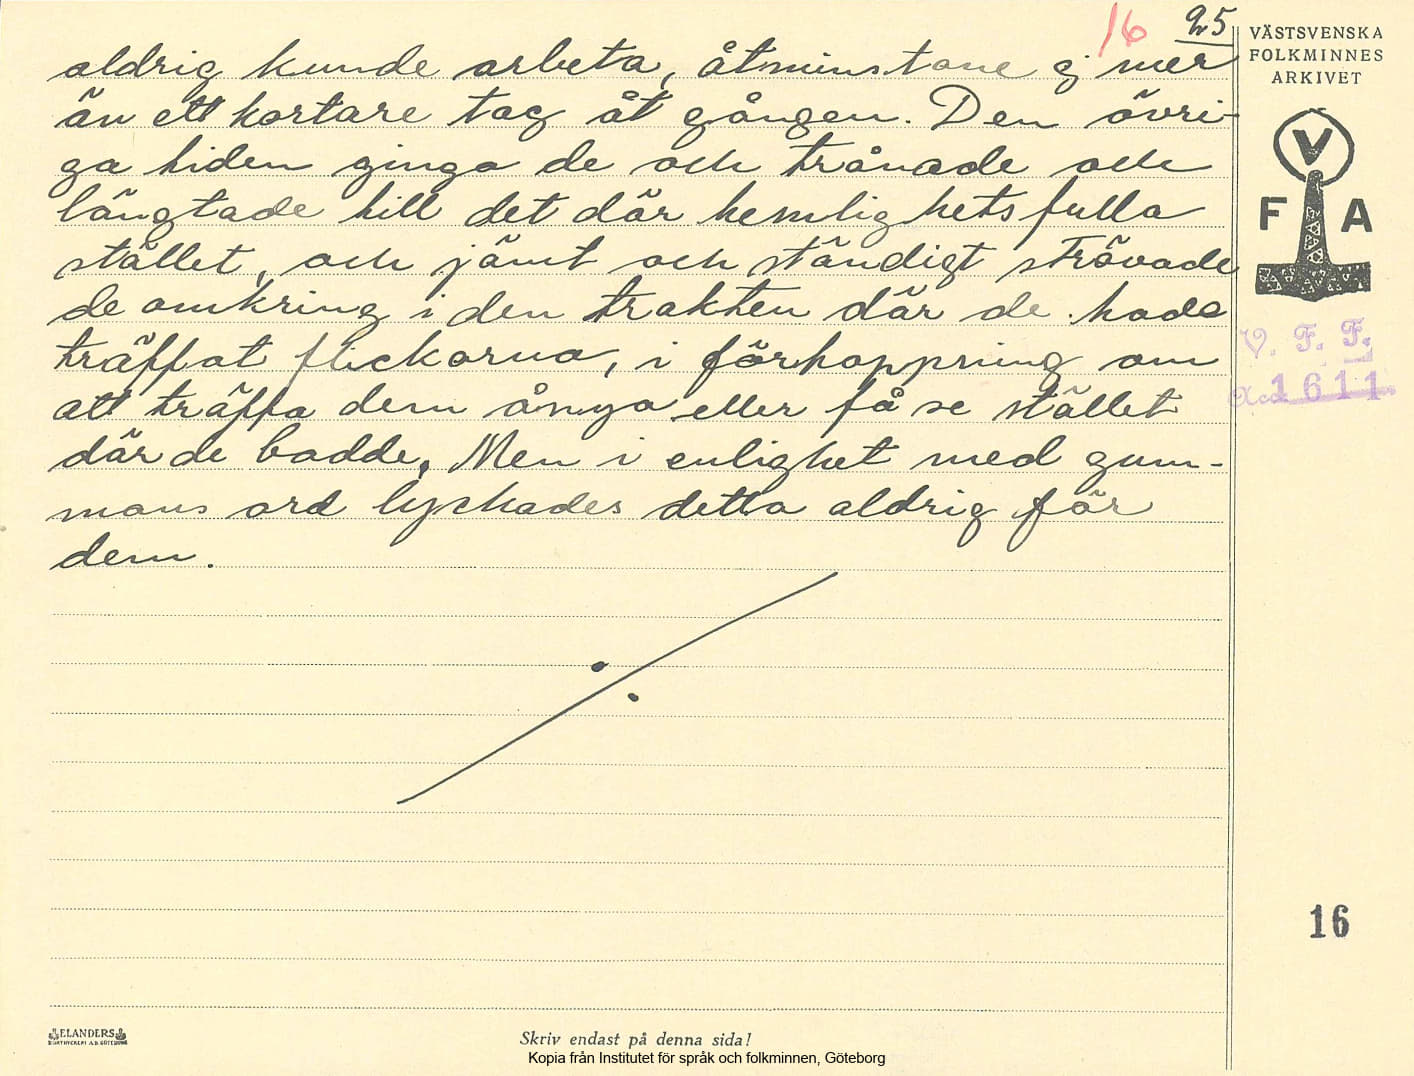 16 25
aldrig kunde arbeta, åtminstone ej mer
än ett kortare tag åt gången. Den övri-
ga tiden gingo de och trånade och
längtade till det där hemlighetsfulla
stället, och jämt och ständigt ströVade
de omkring i den trakten där de hade
träffat flickorna, i förhoppning om
att träffa dem ånyo eller få se stället
där de badde. Men i enlighet med gum-
mans ord lyckades detta aldrig för
dem.
VÄSTSVENSKA
FOLKMINNES
ARKIVET
V
F A
V. F. F.
Acc. 1611
16
ELANDERS
BOKTRYCKERI A.B. GÖTEBORG
Skriv endast på denna sida!
Kopia från Institutet för språk och folkminnen, Göteborg